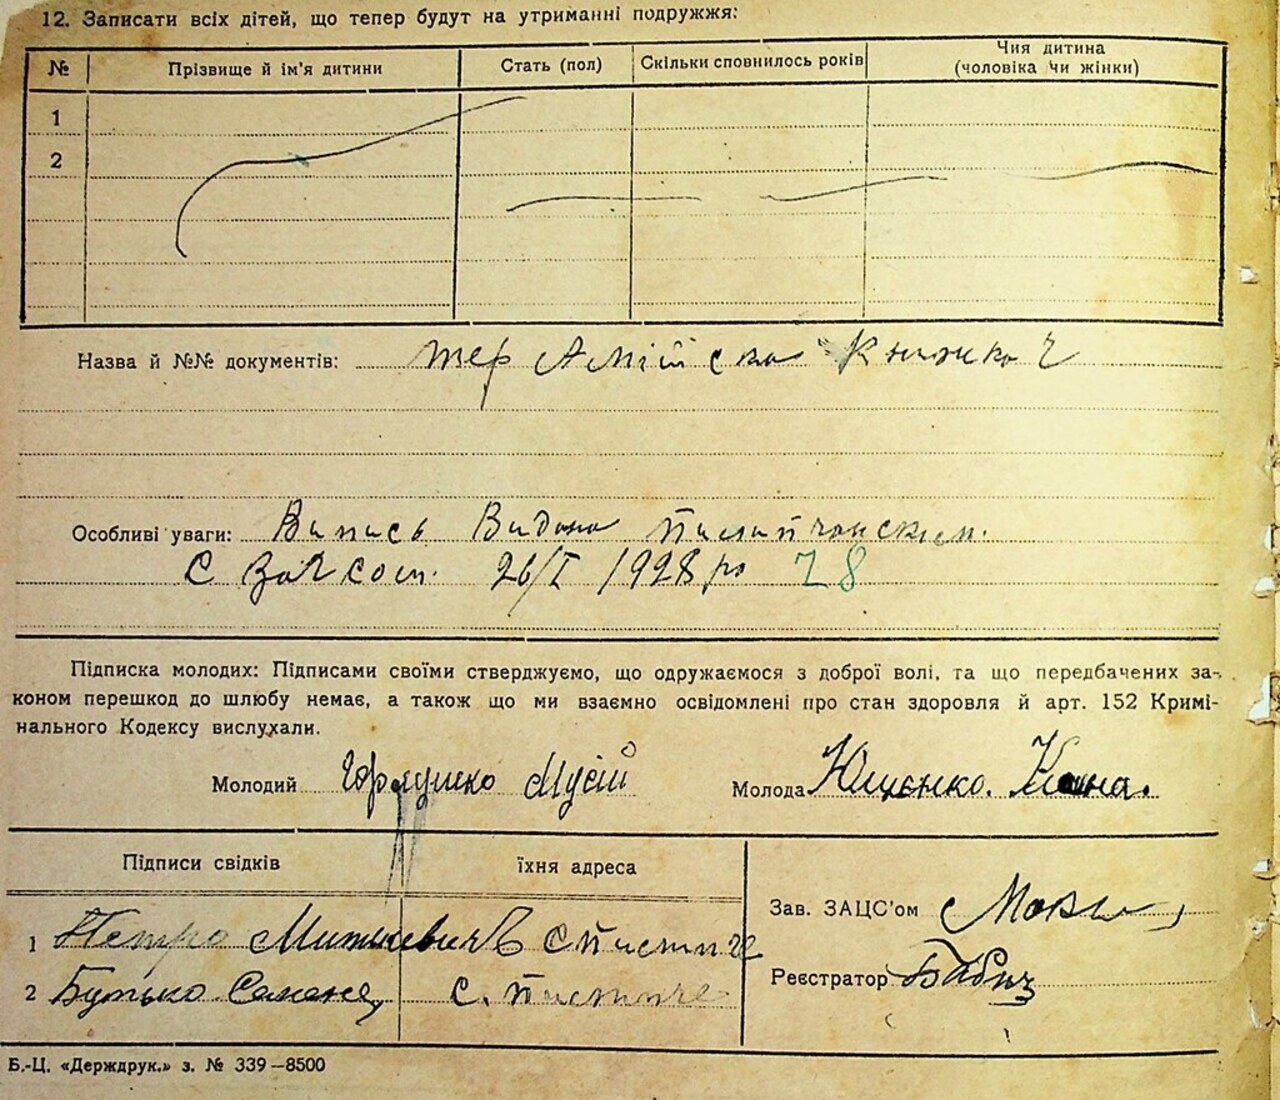 12. Записати всіх дітей, що тепер будут на утриманні подружжя:
№ Прізвище й ім'я дитини Стать (пол) Скільки сповнилось років Чия дитина (чоловіка чи жінки)
1
2
Назва й №№ документів: тер Книжка
Особливі уваги: Випись Видано
С 26/I 1928 р 28
Підписка молодих: Підписами своїми стверджуємо, що одружаємося з доброї волі, та що передбачених за-
коном перешкод до шлюбу немає, а також що ми взаємно освідомлені про стан здоровля й арт. 152 Кримі-
нального Кодексу вислухали.
Молодий Мусій Молода Ющенко.
Підписи свідків їхня адреса
Зав. ЗАЦС'ом
1 Петро Миткевич
Реєстратор Бабич
2 Бутько с.
Б.-Ц. «Держдрук.» з. № 339—8500